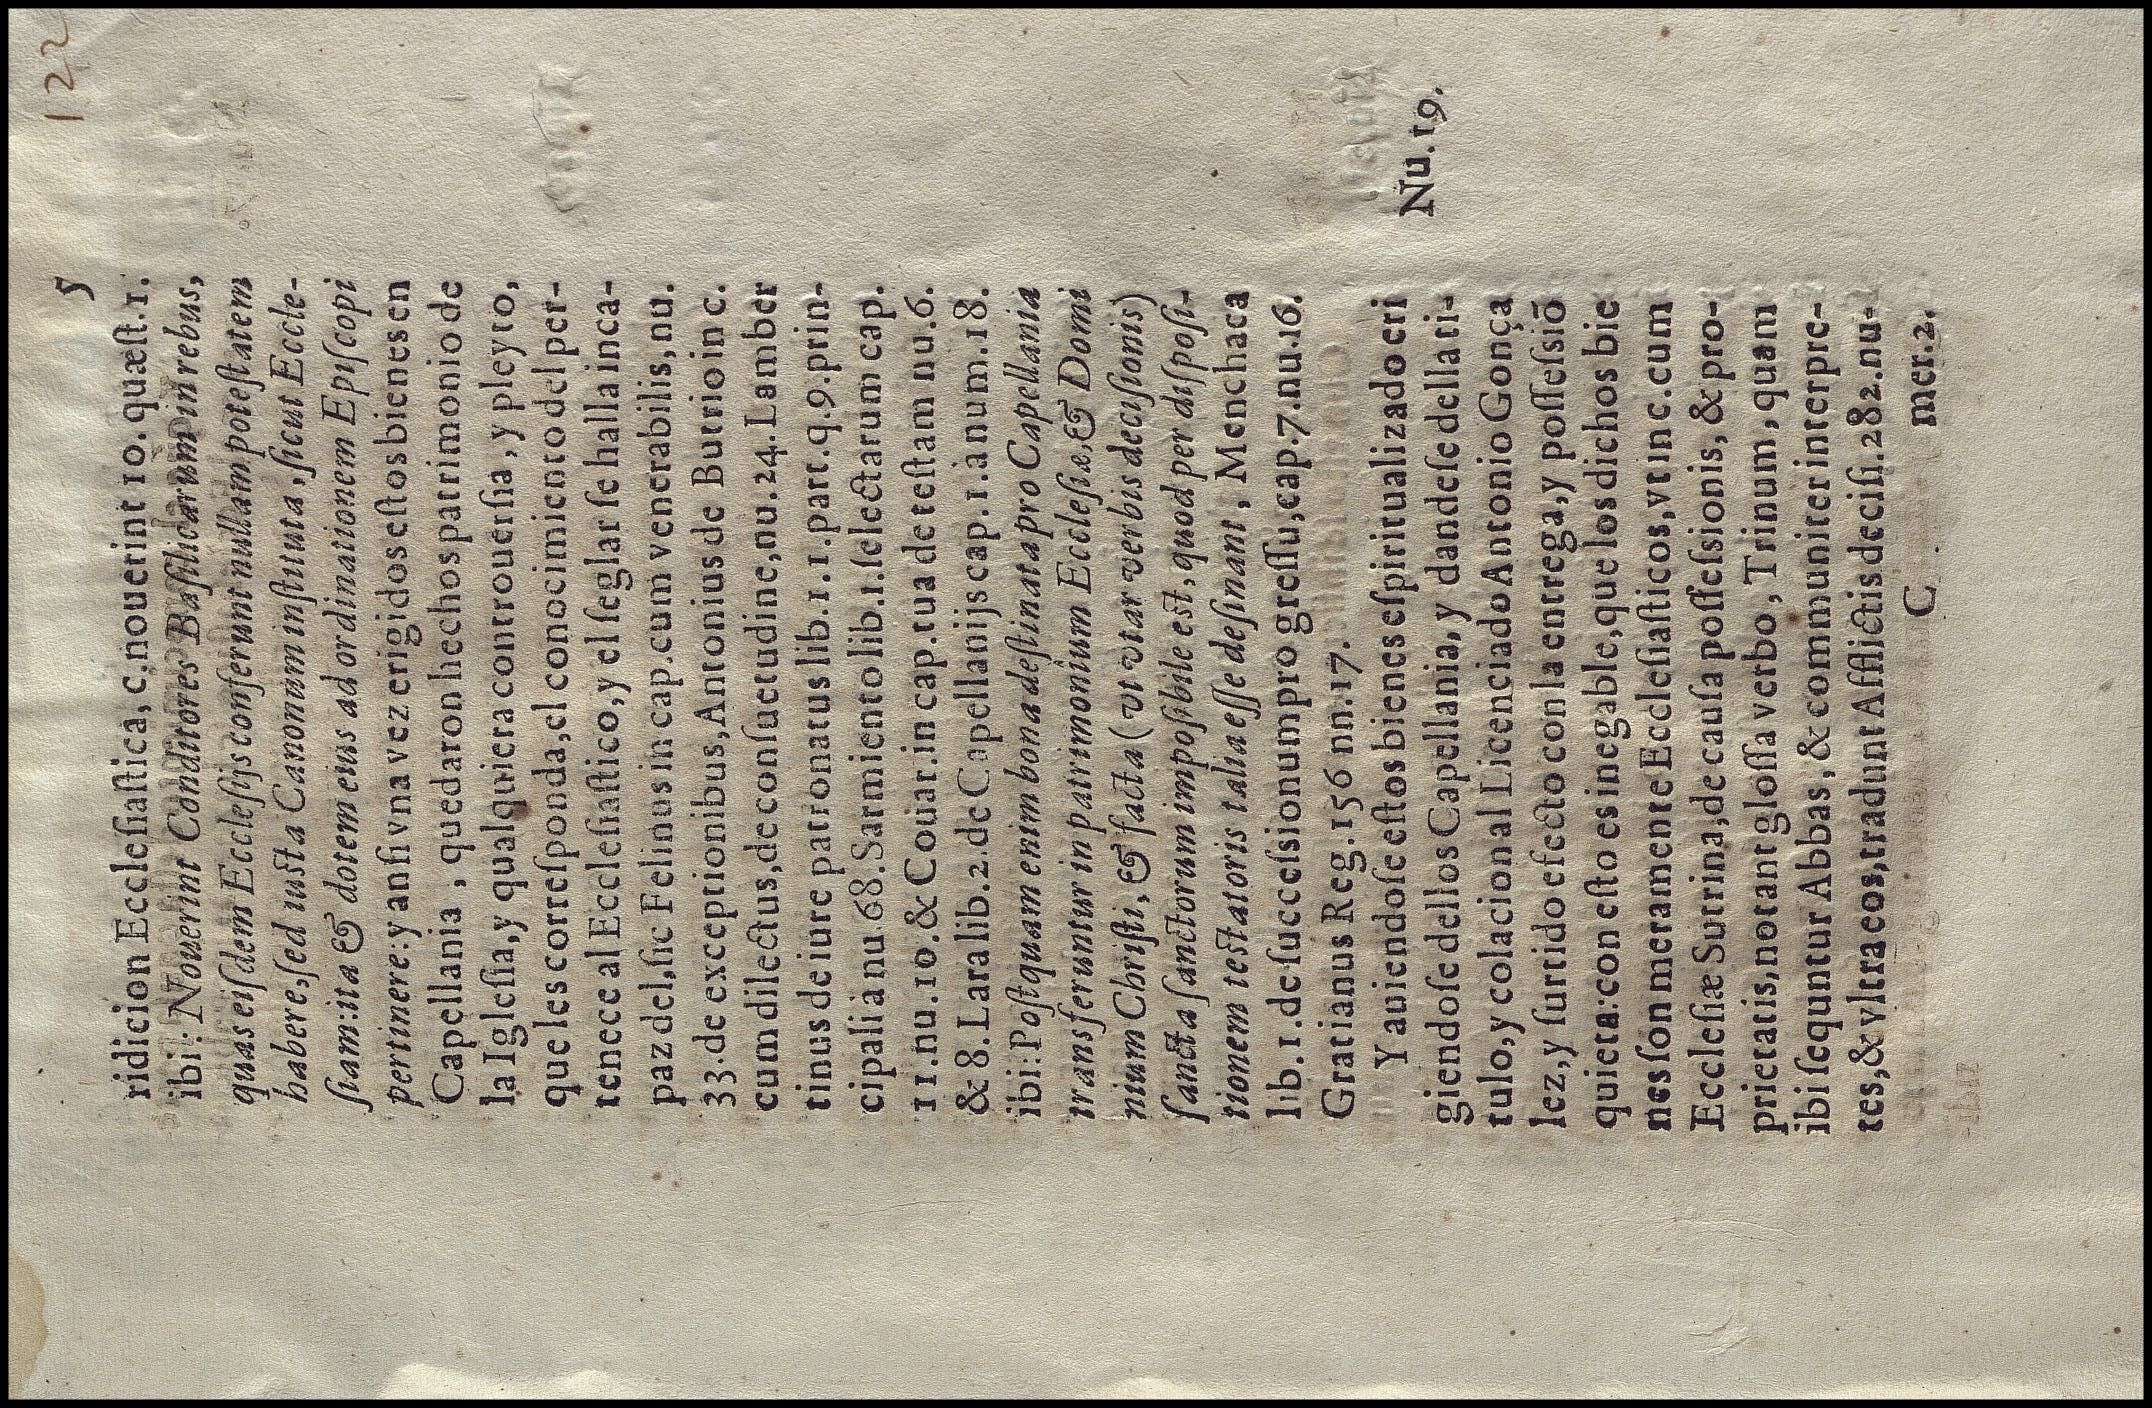 122
5
ridicion Ecclesiastica, c. nouerint 10. quæst. 1.
ibi: Nouerint Conditores Basilicarum in rebus,
quas eisdem Ecclesijs conferunt nullam potestatem
habere, sed iusta Canonum instituta, sicut Eccle-
siam: ita & dotem eius ad ordinationem Episcopi
pertinere: y ansi vna vez erigidos estos bienes en
Capellania, quedaron hechos patrimonio de
la Iglesia, y qualquiera controuersia, y pleyto,
que les corresponda, el conocimiento del per-
tenece al Ecclesiastico, y el seglar se halla inca-
paz del, sic Felinus in cap. cum venerabilis, nu.
33. de exceptionibus, Antonius de Butrio in c.
cum dilectus, de consuetudine, nu. 24. Lamber
tinus de iure patronatus lib. 1. 1. part. q. 9. prin-
cipali a nu. 68. Sarmiento lib. 1. selectarum cap.
11. nu. 10. & Couar. in cap. tua de testam nu. 6.
& 8. Lara lib. 2. de Capellanijs cap. 1. à num. 18.
ibi: Postquam enim bona destinata pro Capellania
transferuntur in patrimonium Ecclesiæ, & Domi
nium Christi, & facta (vt vtar verbis decisionis)
sancta sanctorum imposibile est, quod per disposi-
tionem testatoris talia esse desinant, Menchaca
lib. 1. de successionum progressu, cap. 7. nu. 16.
Gratianus Reg. 156 nn. 17.
Y auiendose estos bienes espiritualizado eri
giendose dellos Capellania, y dandese della ti-
tulo, y colacion al Licenciado Antonio Gonça
lez, y surtido efecto con la entrega, y possessiō
quieta: con esto es inegable, que los dichos bie
nes son meramente Ecclesiasticos, vt in c. cum
Ecclesiæ Sutrina, de causa possessionis, & pro-
prietatis, notant glossa verbo, Trinum, quam
ibi sequntur Abbas, & communiter interpre-
tes, & vltra eos, tradunt Afflictis decisi. 282. nu-
C mer. 2.
Nu. 19.